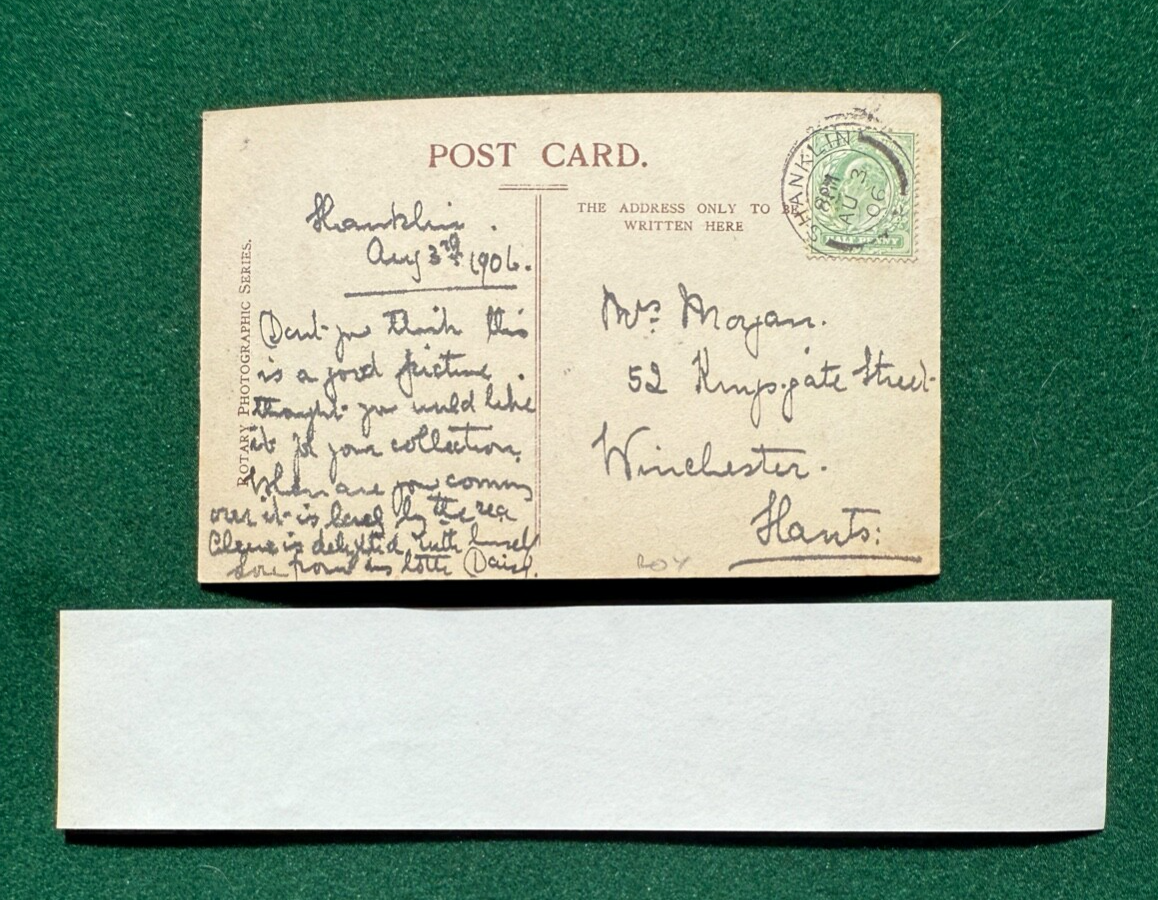 POST CARD.
THE ADDRESS ONLY TO BE
WRITTEN HERE
ROTARY PHOTOGRAPHIC SERIES.
SHANKLIN
8 PM
AU 3
06
HALF PENNY
Shanklin.
Aug 3rd 1906.
Dont you think this
is a good picture.
thought you would like
it for your collection.
When are you coming
over it is lovely by the sea
is delighted with
love from
Mrs Morgan.
52 Kingsgate Street
Winchester.
Hants:
ROY